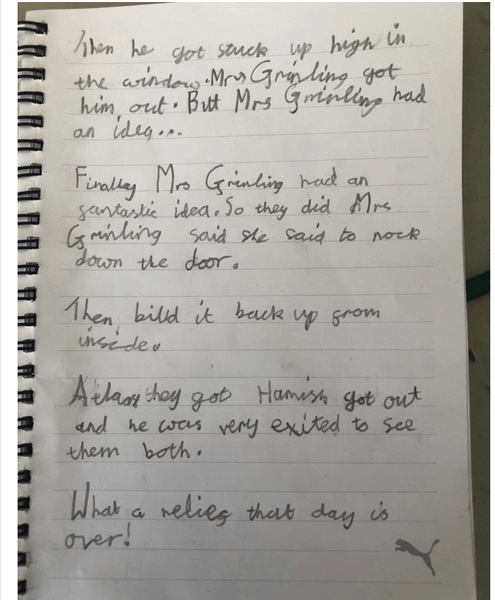 Then he got stuck up high in
the window. Mrs Grinling got
him out. But Mrs Grinling had
an idea...
Finally Mrs Grinling had an
fantastic idea. So they did Mrs
Grinling said she said to nock
down the door.
Then billd it back up from
inside.
Atlast they got Hamish got out
and he was very exited to see
them both.
What a relief that day is
over!